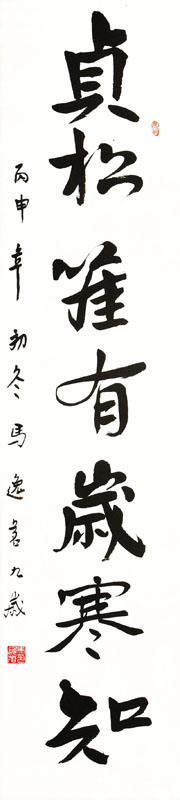 貞松唯有歲寒知
丙申年初冬馬逸九歲